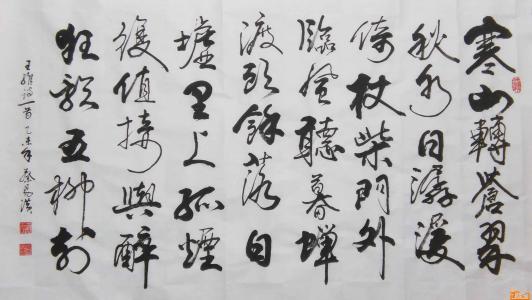 寒山轉蒼翠
秋水日潺湲
倚杖柴門外
臨風聽暮蟬
渡頭餘落日
墟里上孤煙
復值接與醉
狂歌五柳前
王維詩一首乙未年蔡